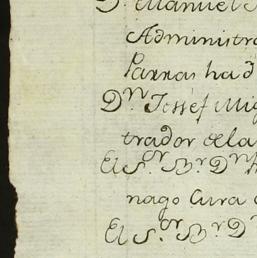 D.ⁿ Manuel
Administra
Parras ha d
D.ⁿ Jossef Mig
trador de la
El S.ᵒʳ Br. D.ⁿ
nago Cura
El S.ᵒʳ Br. D